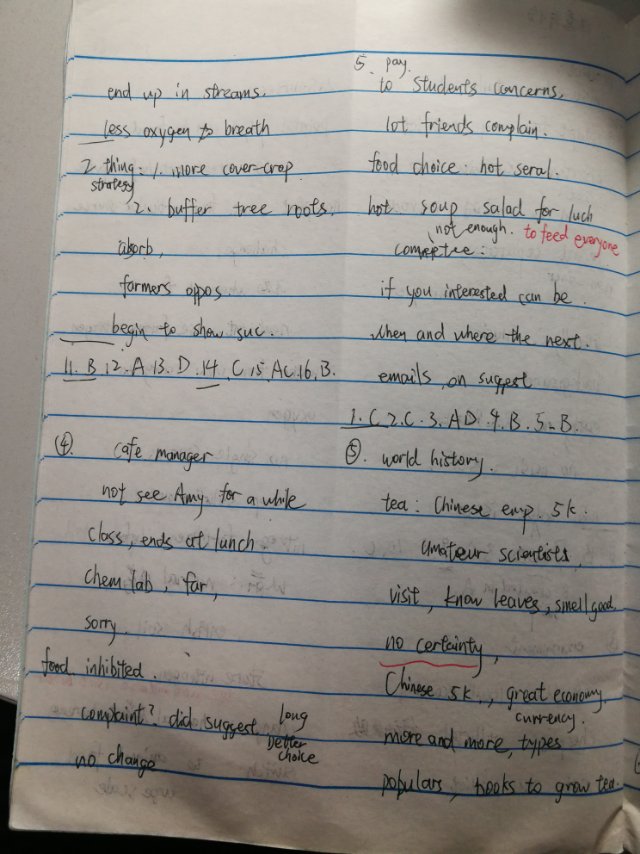 end up in streams.
less oxygen to breath
2 thing: 1. more cover-crop
strategy
2. buffer tree roots.
absorb,
farmers oppos.
begin to show suc.
11. B. 12. A 13. D. 14. C. 15. AC. 16. B.
④. cafe manager
not see Amy for a while
class, ends at lunch.
chem lab, far,
sorry.
food inhibited.
complaint? did suggest long
better
choice
no change
5. pay.
to students concerns.
lot friends complain.
food choice. hot seral.
hot soup salad for luch
not enough. to feed everyone
if you interested can be.
when and where the next.
emails, on suggest
1. C 2. C. 3. AD. 4. B. 5. B.
⑤. world history.
tea: Chinese emp. 5k.
amateur scientists,
visit, know leaves, smell good.
no certainty,
Chinese 5k., great economy.
currency.
more and more, types
populars, books to grow tea.